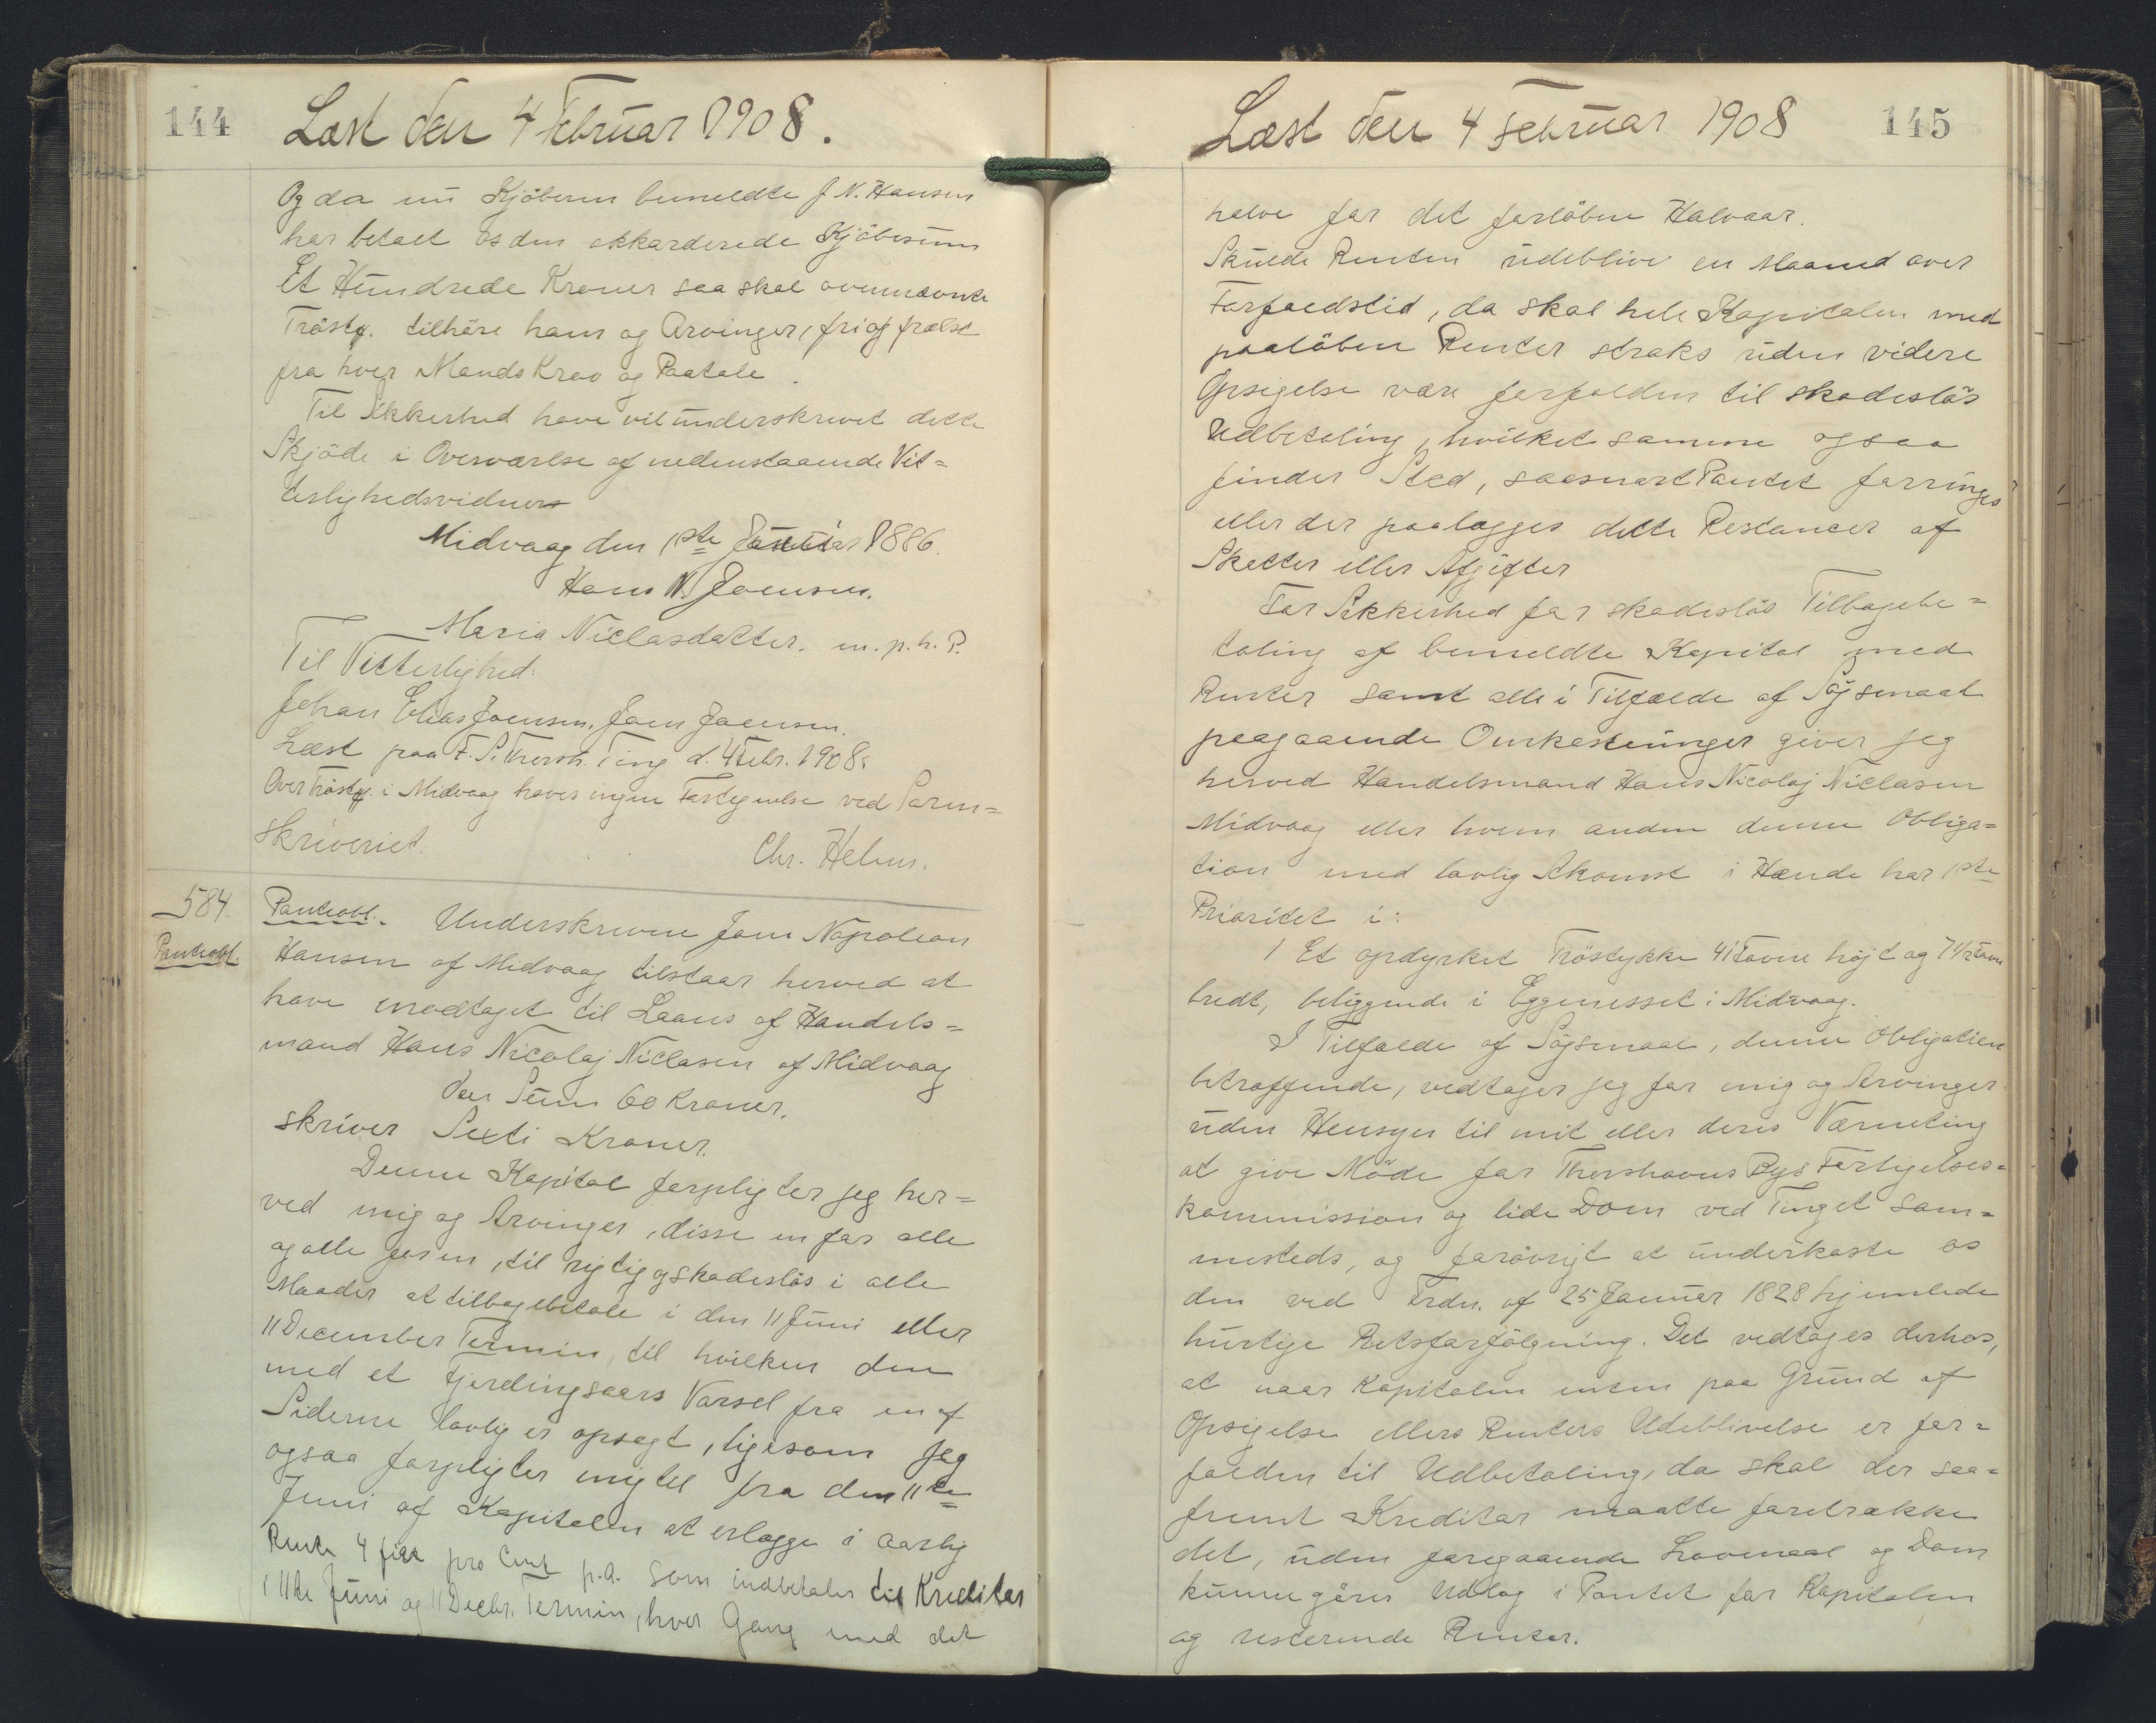 144
Læst den 4 Februar 1908.
Og da nu Kjöberen bemeldte J. N. Hansen
har betalt os den akkorderede Kjöbesum
Et Hundrede Kroner saa skal ovennævnte
Tröstÿ. tilhöre ham og Arvinger, fri og frelst
fra hver Mands Krav og Paatale.
Til Sikkerhed have vi underskrevet dette
Skjöde i Overværelse af nedenstaaende Vit=
terlighedsvidner
Midvaag den 1ste Januar 1886.
Hans N. Joensen.
Maria Niclasdatter. m. p. h. P.
Til Vitterlighed:
Johan Elias Joensen. Joen Joensen.
Læst paa F. S. Thorsh. Ting d. 4 Febr. 1908.
Over Tröstÿ. i Midvaag haves ingen Fæstegivelse ved Soren=
skriveriet.
Chr. Helms.
584.
Panteobl.
Panteobl. Underskrevne Joen Napoleon
Hansen af Midvaag tilstaar herved at
have modtaget til Laans af Handels=
mand Hans Nicolaj Niclasen af Midvaag
den Sum 60 Kroner.
skriver Sexti Kroner.
Denne Kapital forpligter jeg her=
ved mig og Arvinger, disse en for alle
og alle for en, til rigtig og skadeslös i alle
Maader at tilbagebetale i den 11 Juni eller
11 December Termin, til hvilken den
med et Fjerdingaars Varsel fra en af
Siderne lovlig er opsagt, ligesom jeg
ogsaa forpligter mig til fra den 11te
Juni af Kapitalen at erlægge i aarlig
Rente 4 fire pro Cent p.a. som indbetales til Kreditor
i 11te Juni og 11 Decbr. Termin, hver Gang med det
Læst den 4 Februar 1908
145
halve for det forlöbne Halvaar.
Skulde Renten udeblive en Maaned over
Forfaldstid, da skal hele Kapitalen med
paalöbne Renter straks uden videre
Opsigelse være forfalden til skadeslös
Udbetaling, hvilket samme ogsaa
finder Sted, saasnart Pantet forringes
eller der paalægges dette Restancer af
Skatter eller Afgifter
For Sikkerhed for skadeslös Tilbagebe=
taling af bemeldte Kapital med
Renter samt alle i Tilfælde af Sögsmaal
paagaaende Omkostninger giver jeg
herved Handelsmand Hans Nicolaj Niclasen
Midvaag eller hvem anden denne Obliga=
tion med lovlig Adkomst i Hænde har 1ste
Prioritet i:
1 Et opdyrket Tröstykke 41 Favne höjt og 7 1/2 Favne
bredt, beliggende i Eggenesset i Midvaag.
I Tilfælde af Sögsmaal, denne Obligation
betræffende, vedtager jeg for mig og Arvinger
uden Hensyn til mit eller deres Værneting
at give Möde for Thorshavns Bys Forligelses=
kommission og lide Dom ved Tinget sam=
mesteds, og forövrigt at underkaste os
den ved Frdn. af 25 Januar 1828 hjemlede
hurtige Retsforfölgning. Det vedtages derhos,
at naar Kapitalen enten paa Grund af
Opsigelse ellers Renters Udeblivelse er for=
falden til Udbetaling, da skal der saa=
fremt Kreditor maatte foretrække
det, uden foregaaende Lovmaal og Dom
kunne göres Udlæg i Pantet for Kapitalen
og resterende Renter.